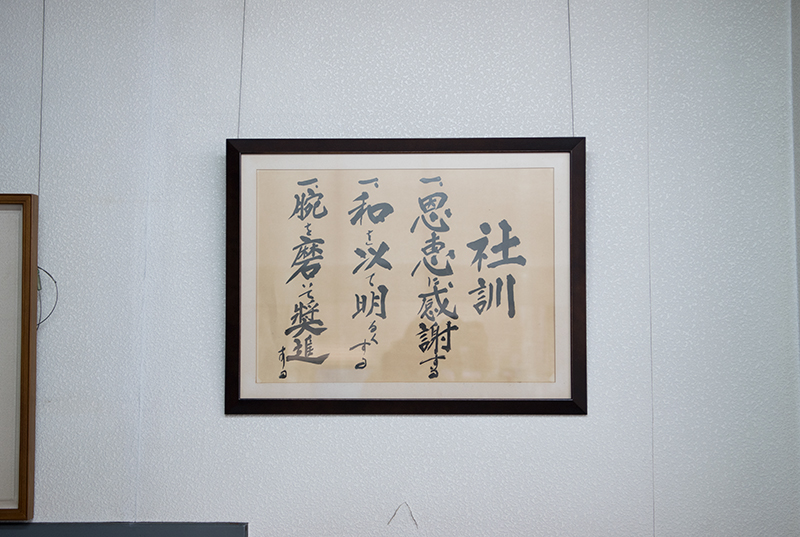 社訓
一、恩恵に感謝する
一、和を以て明るくする
一、腕を磨いて奨進する